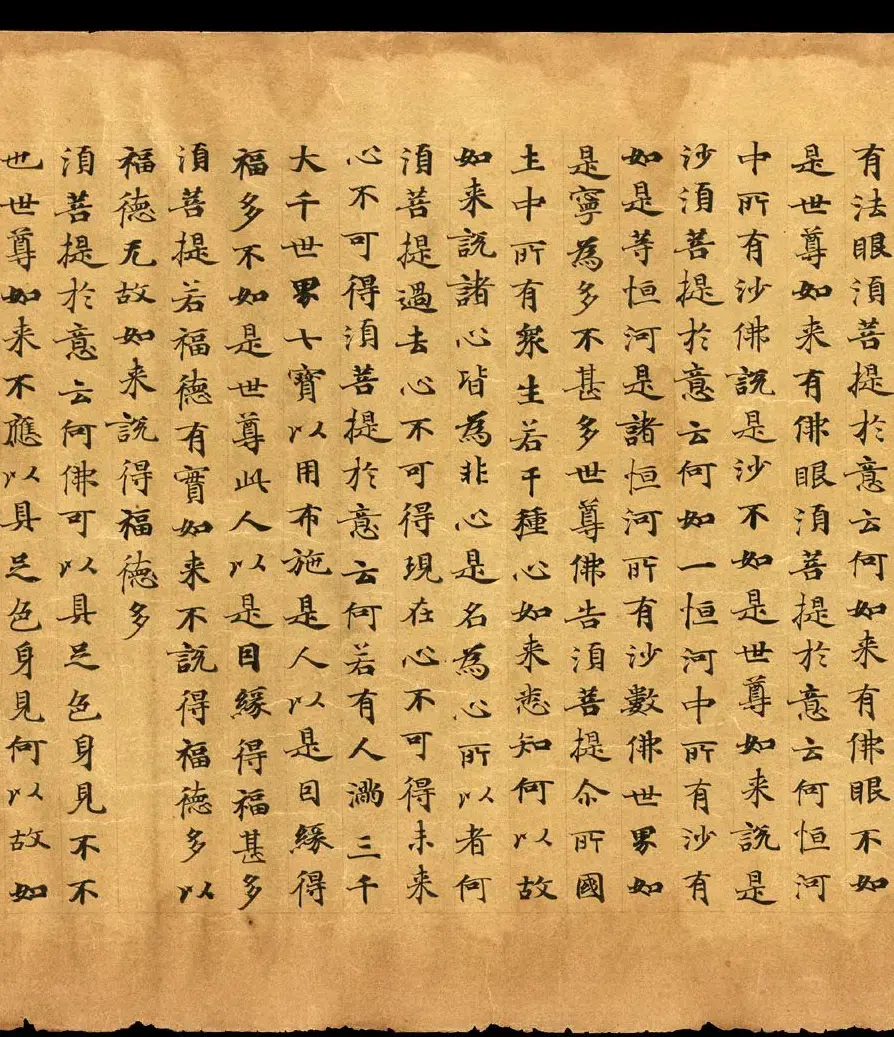 有法眼須菩提於意云何如来有佛眼不如
是世尊如来有佛眼須菩提於意云何恒河
中所有沙佛說是沙不如是世尊如来說是
沙須菩提於意云何如一恒河中所有沙有
如是等恒河是諸恒河所有沙數佛世界如
是寧為多不甚多世尊佛告須菩提尒所國
土中所有衆生若干種心如来悉知何以故
如来說諸心皆為非心是名為心所以者何
須菩提過去心不可得現在心不可得未来
心不可得須菩提於意云何若有人滿三千
大千世界七寶以用布施是人以是因緣得
福多不如是世尊此人以是因緣得福甚多
須菩提若福德有實如来不說得福德多以
福德无故如来說得福德多
須菩提於意云何佛可以具足色身見不不
也世尊如来不應以具足色身見何以故如